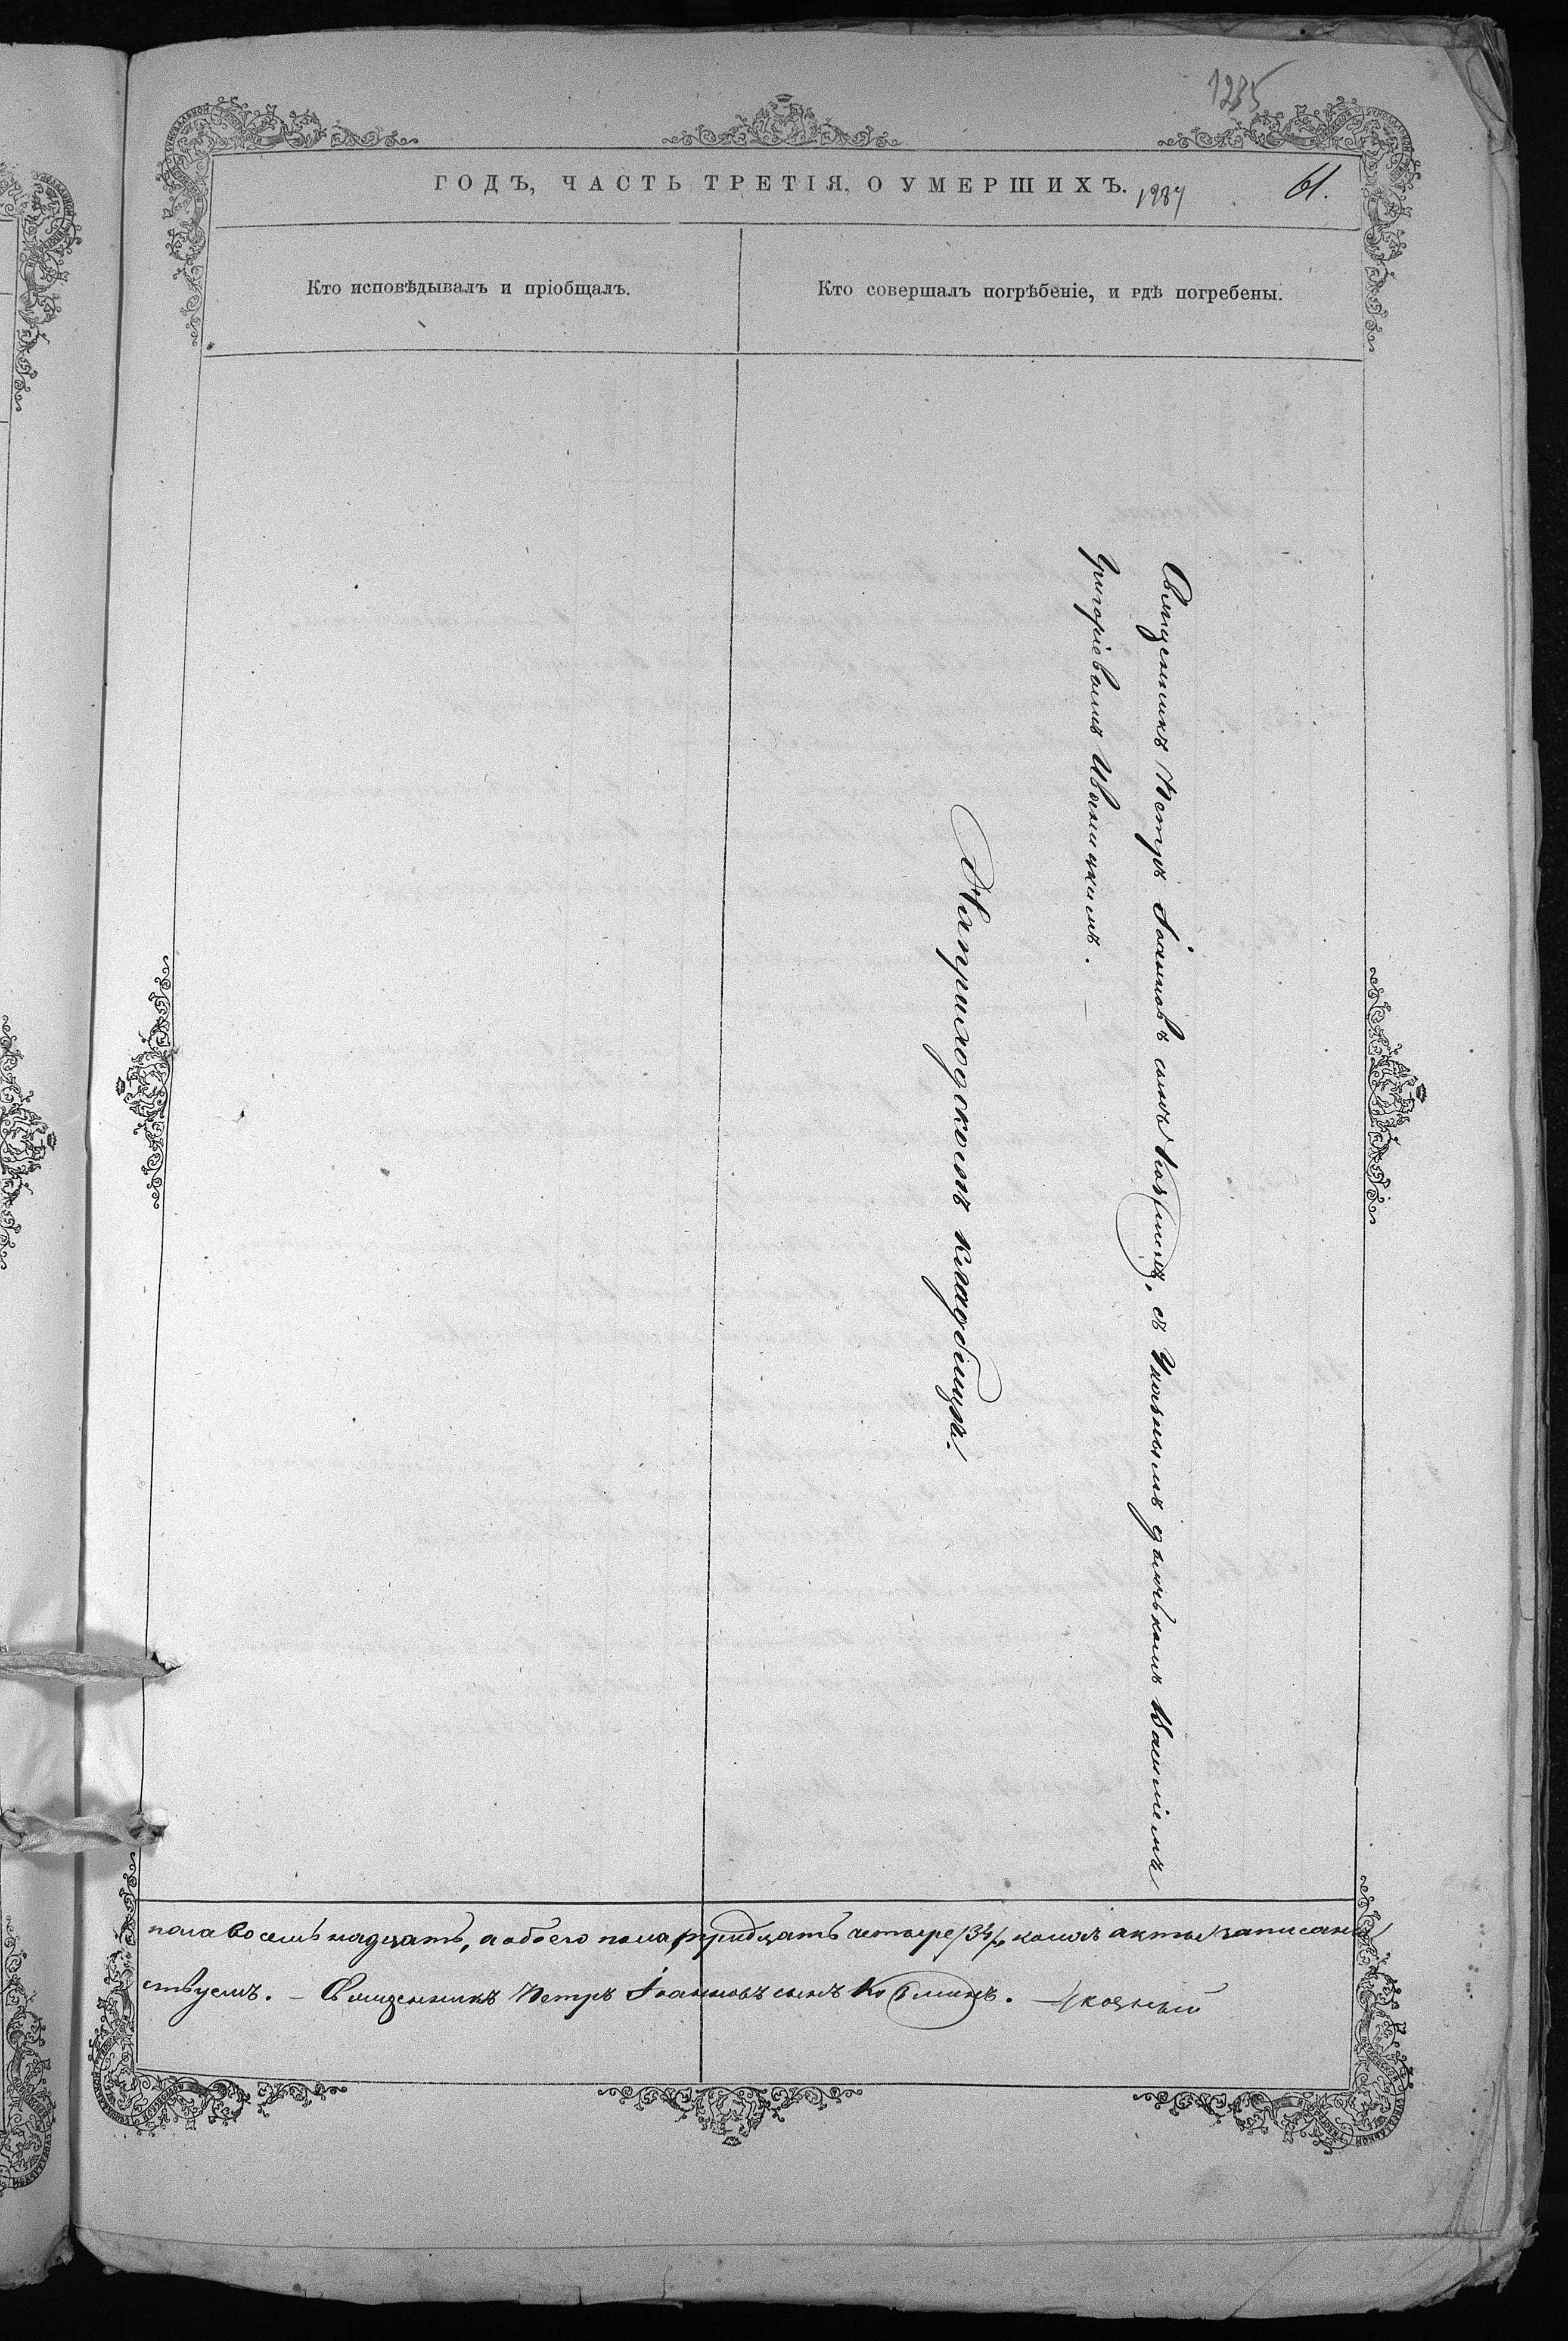 1235
ГОДЪ, ЧАСТЬ ТРЕТІЯ, О УМЕРШИХЪ.
61.
Кто исповѣдывалъ и пріобщалъ.
Кто совершалъ погрѣбеніе, и гдѣ погребены.
Священникъ Петръ Іоанновъ сынъ Козминъ, съ Указнымъ дьячькомъ Василіемъ
Григоріевымъ Иваницкимъ. —
На приходскомъ кладбищи.
пола восемьнадцать, а обоего пола, тридцать четыре /34/, коихъ акты записаны
ствуемъ. — Священникъ Петръ Іоанновъ сынъ Козминъ. — Указный